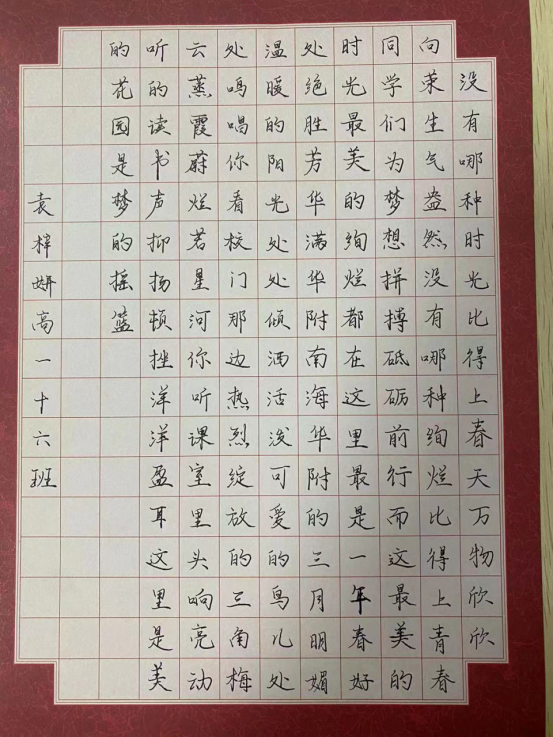 没有哪种时光比得上春天万物欣欣
向荣生气盎然没有哪种绚烂比得上青春
同学们为梦想拼搏砥砺前行而这最美的
时光最美的绚烂都在这里最是一年春好
处绝胜芳华满华附南海华附的三月明媚
温暖的阳光处处倾洒活泼可爱的鸟儿处
处鸣唱你看校门那边热烈绽放的三角梅
云蒸霞蔚烂若星河你听课室里头响亮动
听的读书声抑扬顿挫洋洋盈耳这里是美
的花园是梦的摇篮
袁梓妍高一十六班